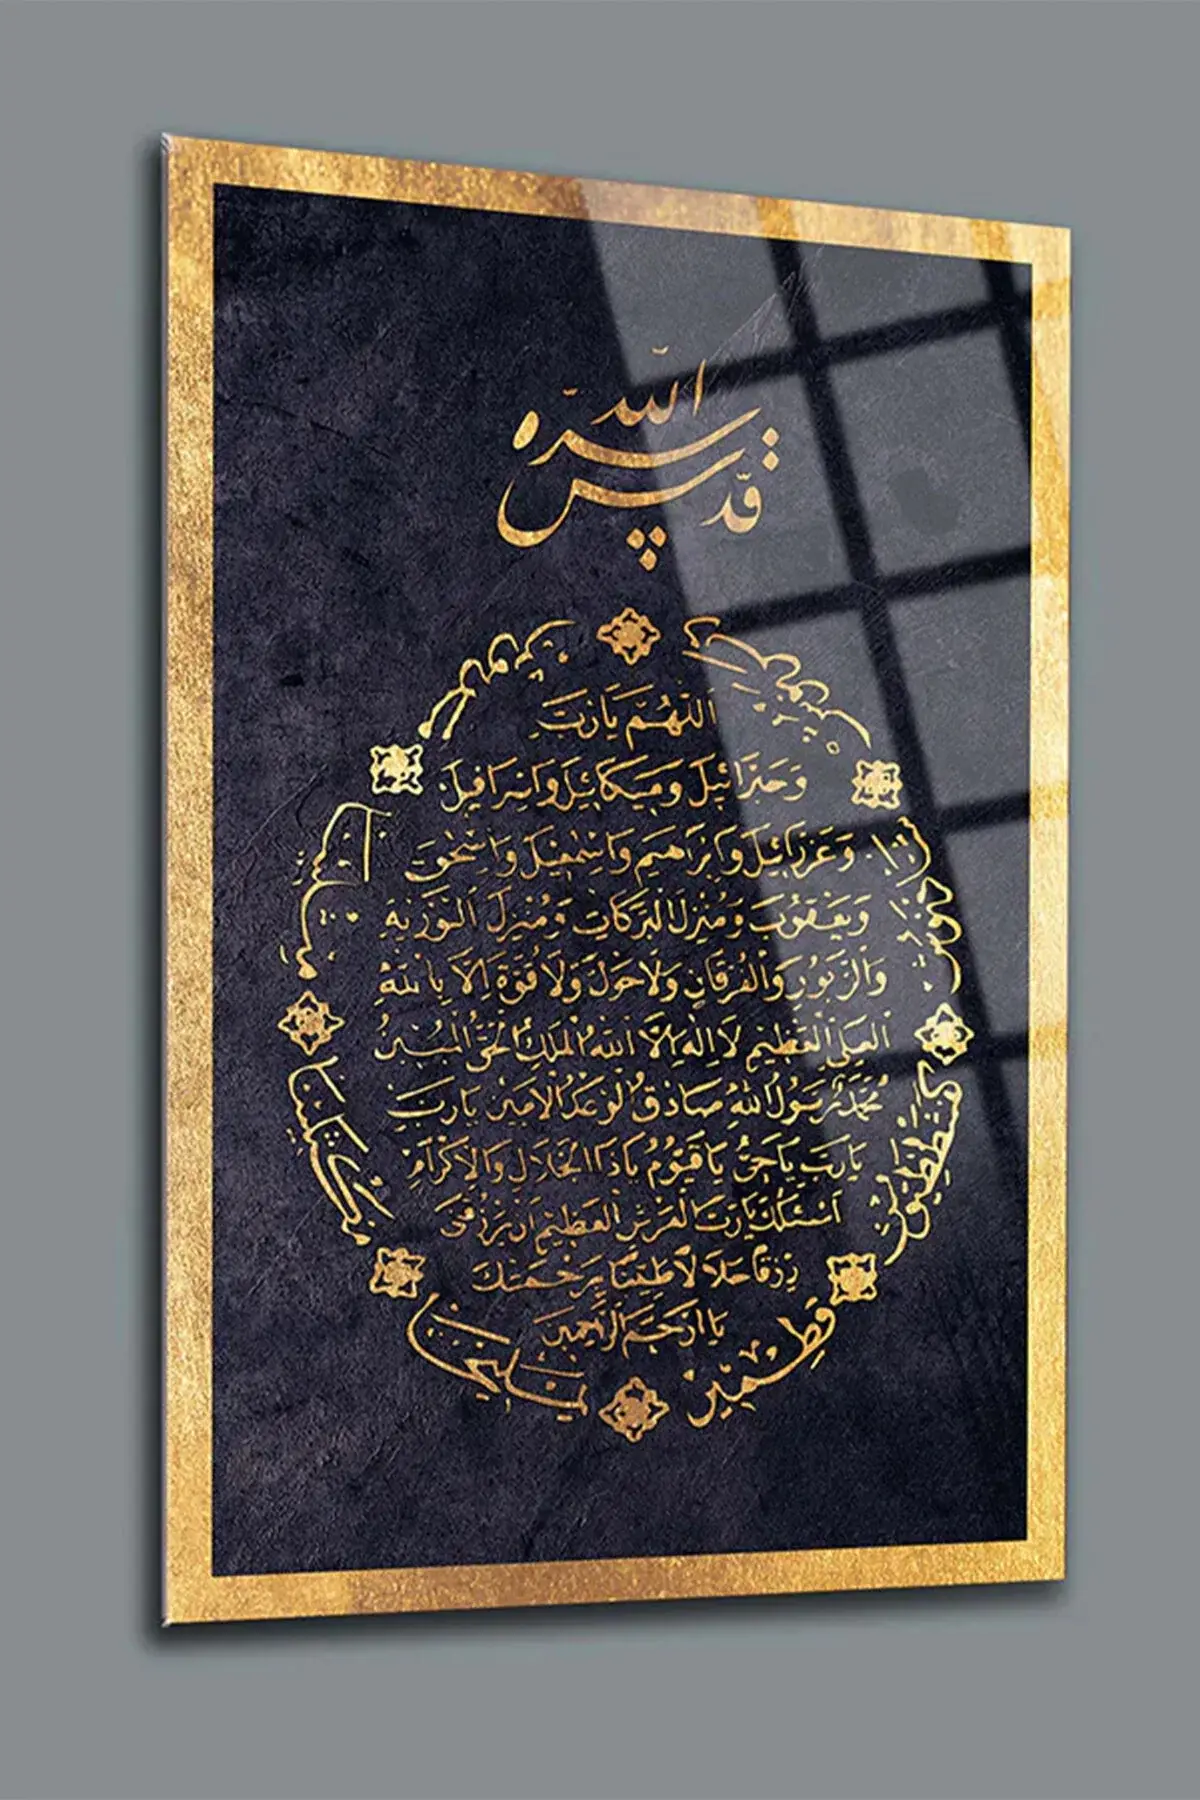 قدّس الله سرّه
اَللّٰهُمَّ يَارَبَّ
وَجَبْرَائِيلَ وَمِيكَائِيلَ وَاِسْرَافِيلَ
وَعَزْرَائِيلَ وَاِبْرَاهِيمَ وَاِسْمٰعِيلَ وَاِسْحٰقَ
وَيَعْقُوبَ وَمُنْزِلَ الْبَرَكَاتِ وَمُنْزِلَ التَّوْرٰيةِ
وَالزَّبُورِ وَالْفُرْقَانِ وَلَا حَوْلَ وَلَا قُوَّةَ اِلَّا بِاللّٰهِ
الْعَلِيِّ الْعَظِيمِ لَا اِلٰهَ اِلَّا اللّٰهُ الْمَلِكُ الْحَقُّ الْمُبِينُ
مُحَمَّدٌ رَسُولُ اللّٰهِ صَادِقُ الْوَعْدِ الْاَمِينُ يَارَبِّ
يَارَبِّ يَاحَيُّ يَاقَيُّومُ يَاذَا الْجَلَالِ وَالْاِكْرَامِ
اَسْئَلُكَ يَارَبَّ الْعَرْشِ الْعَظِيمِ اَنْ تَرْزُقَنِي
رِزْقًا حَلَالًا طَيِّبًا بِرَحْمَتِكَ
يَا اَرْحَمَ الرَّاحِمِينَ
يمليخا